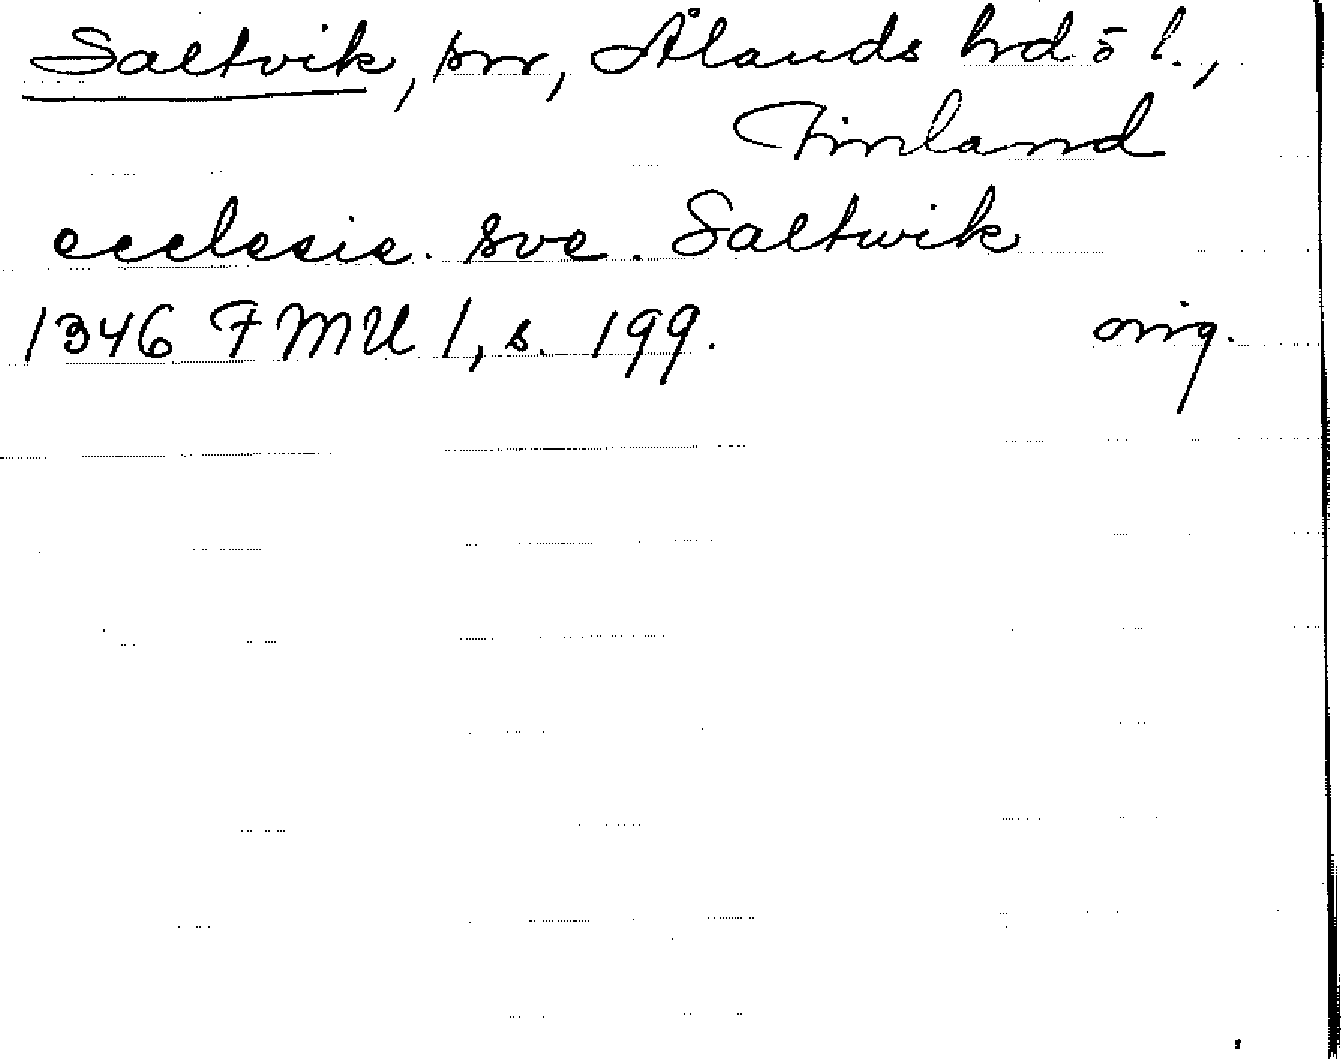 Saltvik, sn, Ålands hrd o l.,
Finland
ecclesie. sve. Saltwik
1346 FMU 1, s. 199. orig.